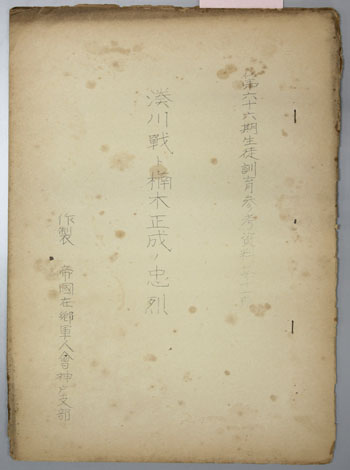 第六十六期生徒訓育参考資料
湊川戦ト楠木正成ノ忠烈
作製 帝國在郷軍人會神戸支部